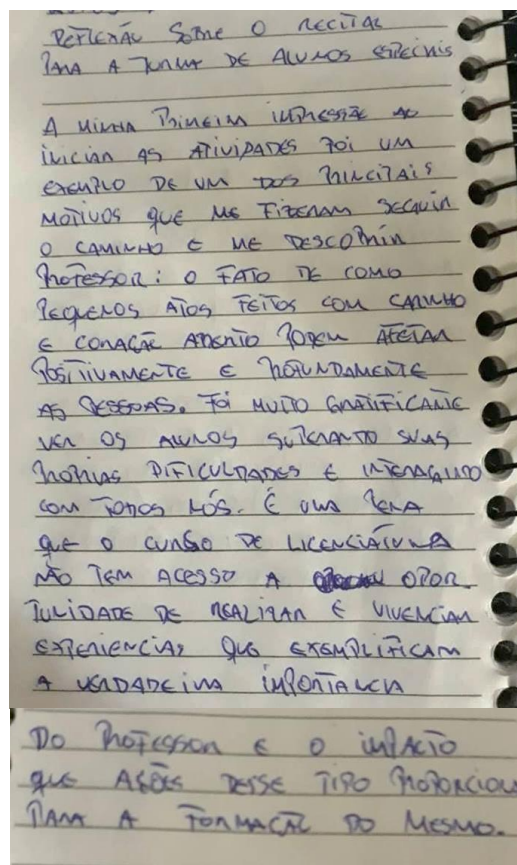 REFLEXÃO SOBRE O RECITAL
PARA A TURMA DE ALUNOS ESPECIAIS
A MINHA PRIMEIRA IMPRESSÃO AO
INICIAR AS ATIVIDADES FOI UM
EXEMPLO DE UM DOS PRINCIPAIS
MOTIVOS QUE ME FIZERAM SEGUIR
O CAMINHO E ME DESCOBRIR
PROFESSOR: O FATO DE COMO
PEQUENOS ATOS FEITOS COM CARINHO
E CORAÇÃO ABERTO PODEM AFETAR
POSITIVAMENTE E PROFUNDAMENTE
AS PESSOAS. FOI MUITO GRATIFICANTE
VER OS ALUNOS SUPERANDO SUAS
PRÓPRIAS DIFICULDADES E INTERAGINDO
COM TODOS NÓS. É UMA PENA
QUE O CURSO DE LICENCIATURA
NÃO TEM ACESSO A OPOR
TUNIDADE DE REALIZAR E VIVENCIAR
EXPERIENCIAS QUE EXEMPLIFICAM
A VERDADEIRA IMPORTANCIA
DO PROFESSOR E O IMPACTO
QUE AÇÕES DESSE TIPO PROPORCION
PARA A FORMAÇÃO DO MESMO.